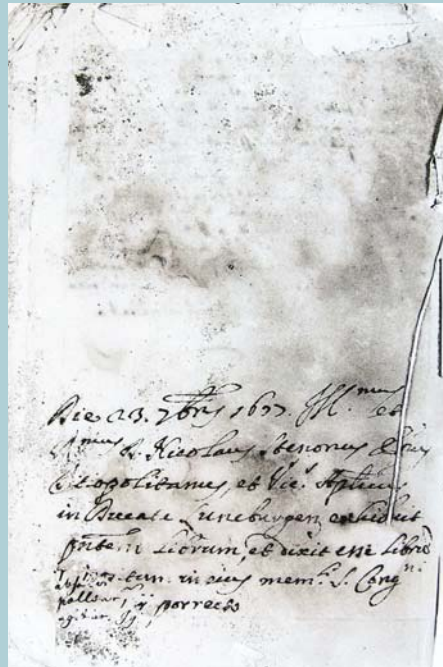 Die 23. 7bris 1677. Ill.mus et
R.mus D. Nicolaus Stenonus Epus
Titopolitanus, et Vic.s Aplicus
in Ducatu Luneburgen. exhibuit
pntem Librum, et dixit esse Librũ
in eius mem.li S. Cong.nis
porrecto